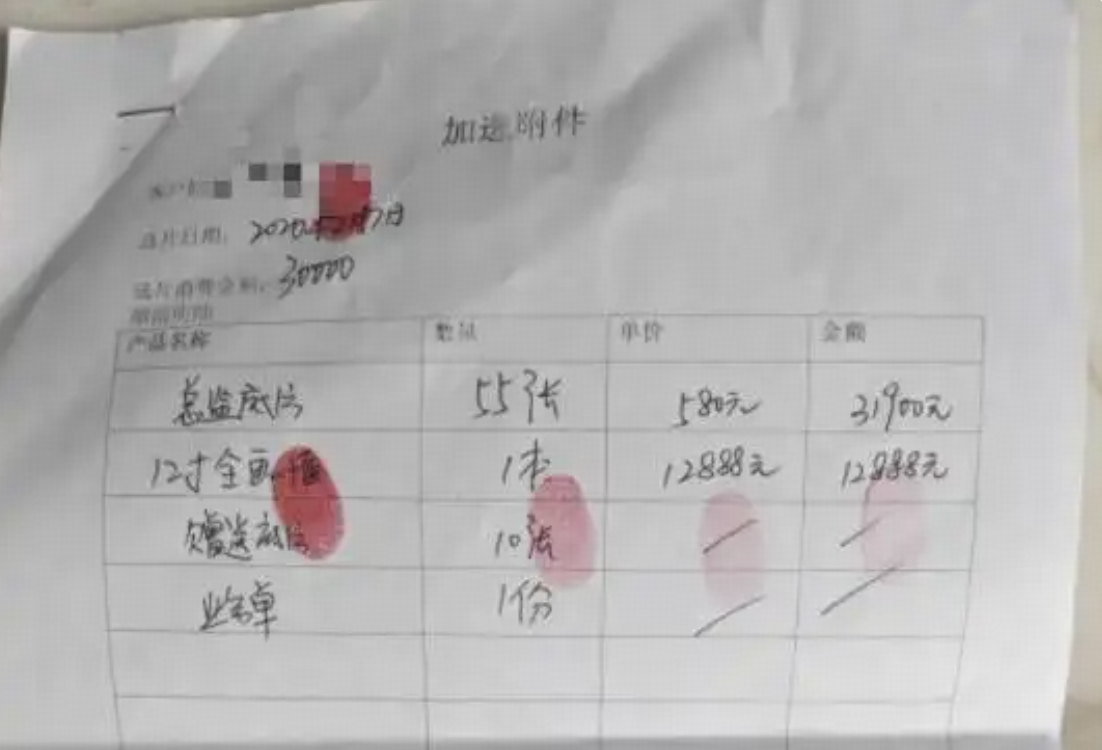 加选附件
选片日期: 2020年2月7日
选片消费金额: 30000
产品名称 数量 单价 金额
总监底片 55张 580元 31900元
12寸全画 1本 12888元 12888元
赠送底片 10张 / /
1份 / /